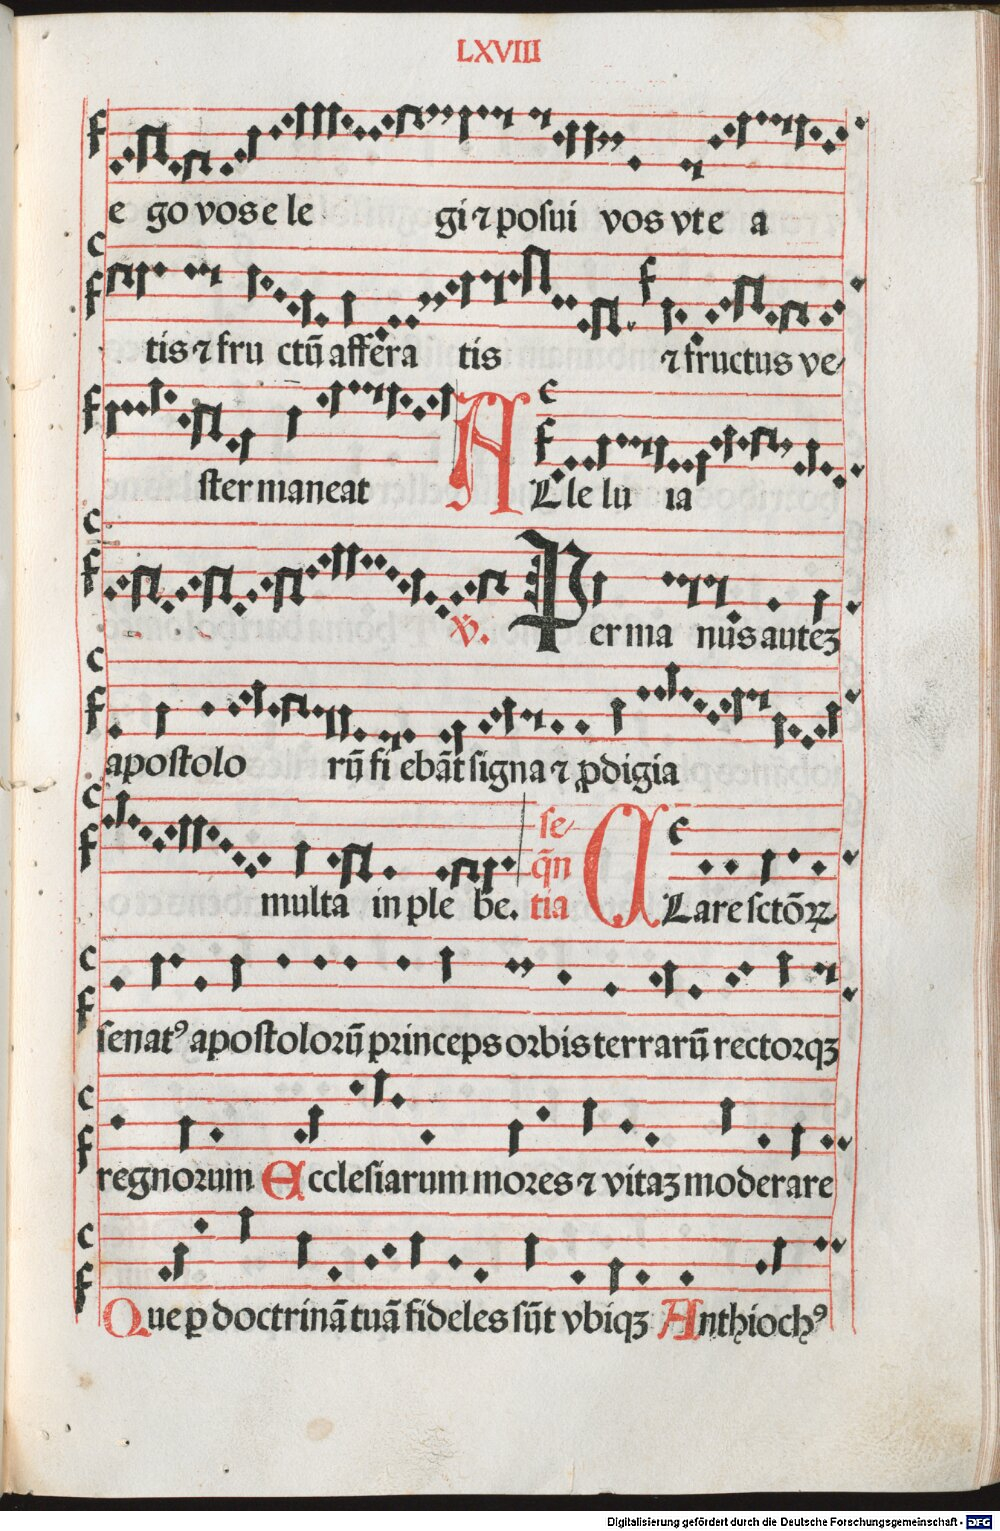 LXVIII
e go vos e le gi ⁊ posui vos vt e a
tis ⁊ fru ctū afferatis ⁊ fructus ve⸗
ster maneat ALle lu ia
℣. Per ma nus autēꝫ
apostolo rū fi ebāt signa ⁊ ꝓdigia
multa in ple be. se⸗ q̄n tia CLare sctōꝝ
senatꝰ apostolorū princeps orbis terrarū rectorqꝫ
regnorum Ecclesiarum mores ⁊ vitaꝫ moderare
Que ꝑ doctrinā tuā fideles sūt vbiqꝫ Anthiochꝰ
Digitalisierung gefördert durch die Deutsche Forschungsgemeinschaft - DFG